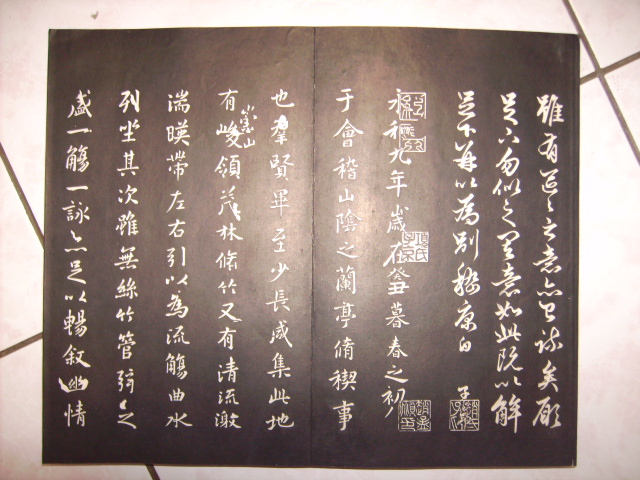 雖有區〻之意亦已疏矣願
足下勿似之其意如此既以解
足下并以為別嵇康白
永和九年歲在癸丑暮春之初
于會稽山陰之蘭亭脩稧事
也羣賢畢至少長咸集此地
有崇山峻領茂林脩竹又有清流激
湍暎帶左右引以為流觴曲水
列坐其次雖無絲竹管弦之
盛一觴一詠亦足以暢敘幽情